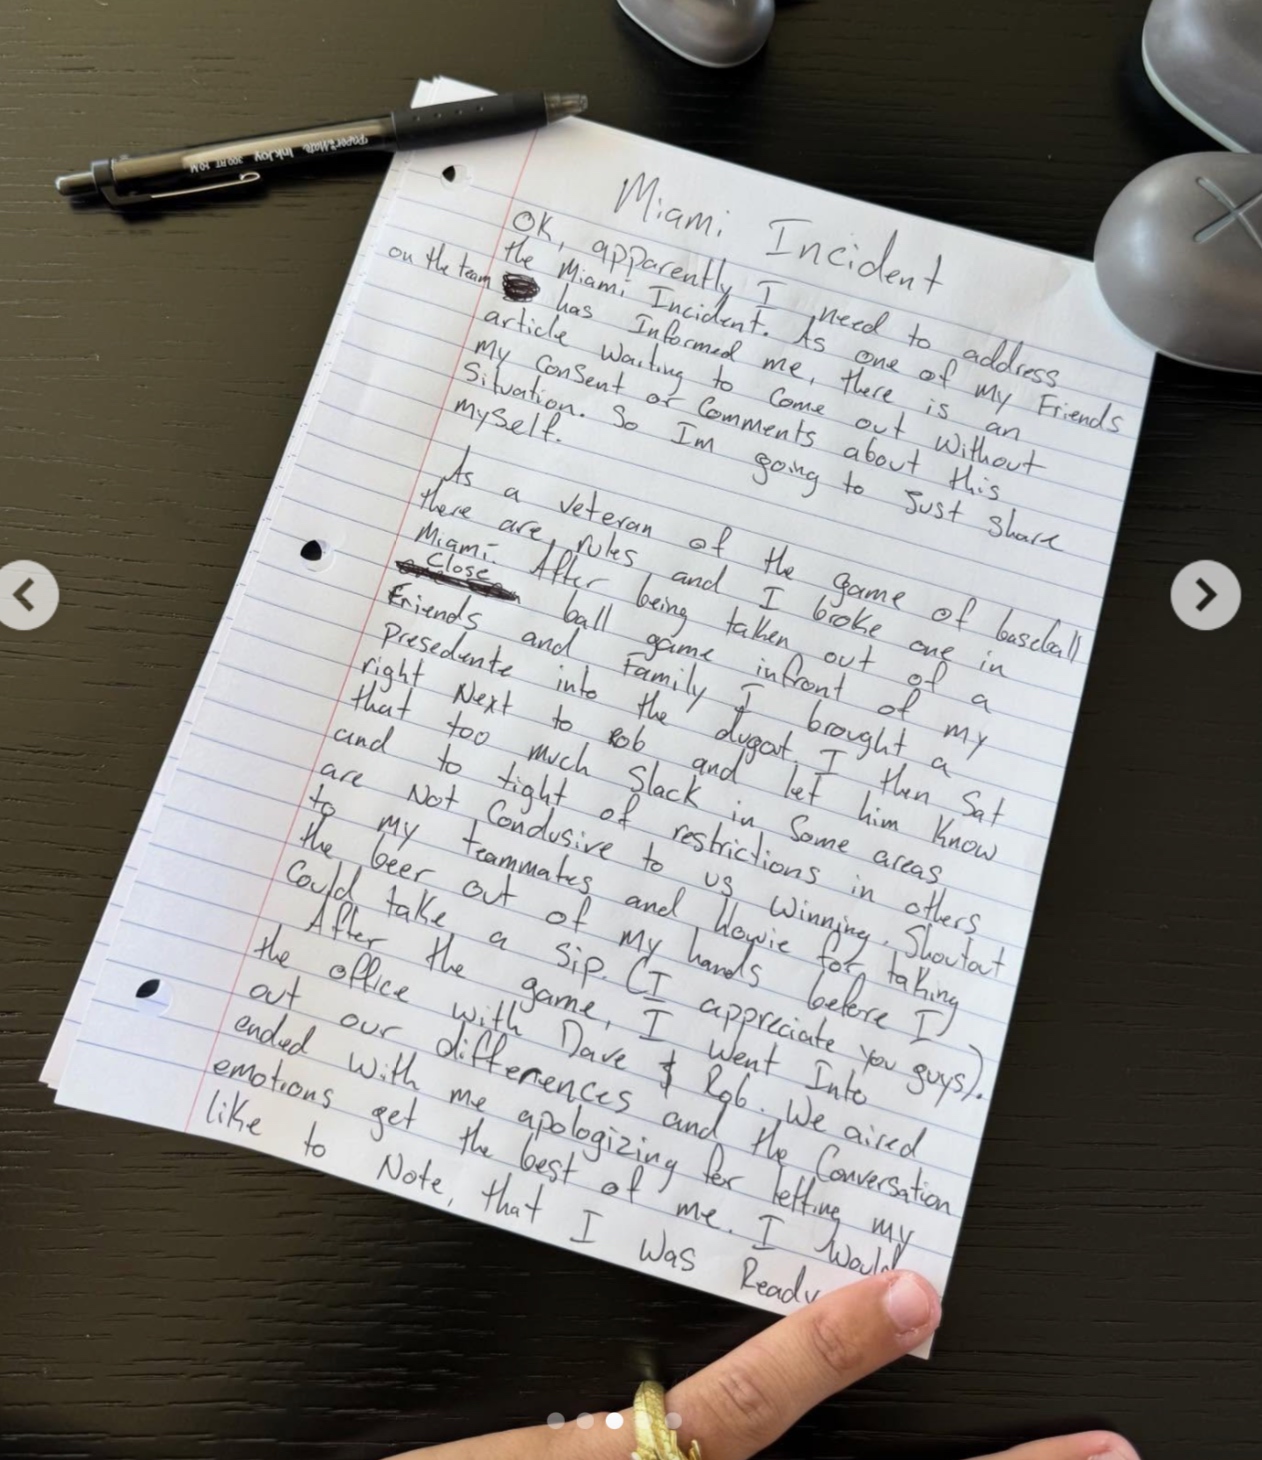 PaperMate InkJoy 300 RT 1.0M
Miami Incident
OK, apparently I need to address
the Miami Incident. As one of my Friends
on the team has Informed me, there is an
article waiting to come out without
my consent or comments about this
situation. So Im going to just share
myself.
As a veteran of the game of baseball
there are rules and I broke one in
Miami. After being taken out of a
Close ball game infront of my
Friends and Family I brought a
Presedente into the dugout. I then sat
right Next to Rob and let him know
that too much slack in some areas
and to tight of restrictions in others
are Not Condusive to us winning. Shoutout
to my teammates and Howie for taking
the beer out of my hands before I
Could take a sip. (I appreciate you guys).
After the game, I went Into
the office with Dave & Rob. We aired
out our differences and the Conversation
ended with me apologizing for letting my
emotions get the best of me. I would
like to Note, that I was Ready